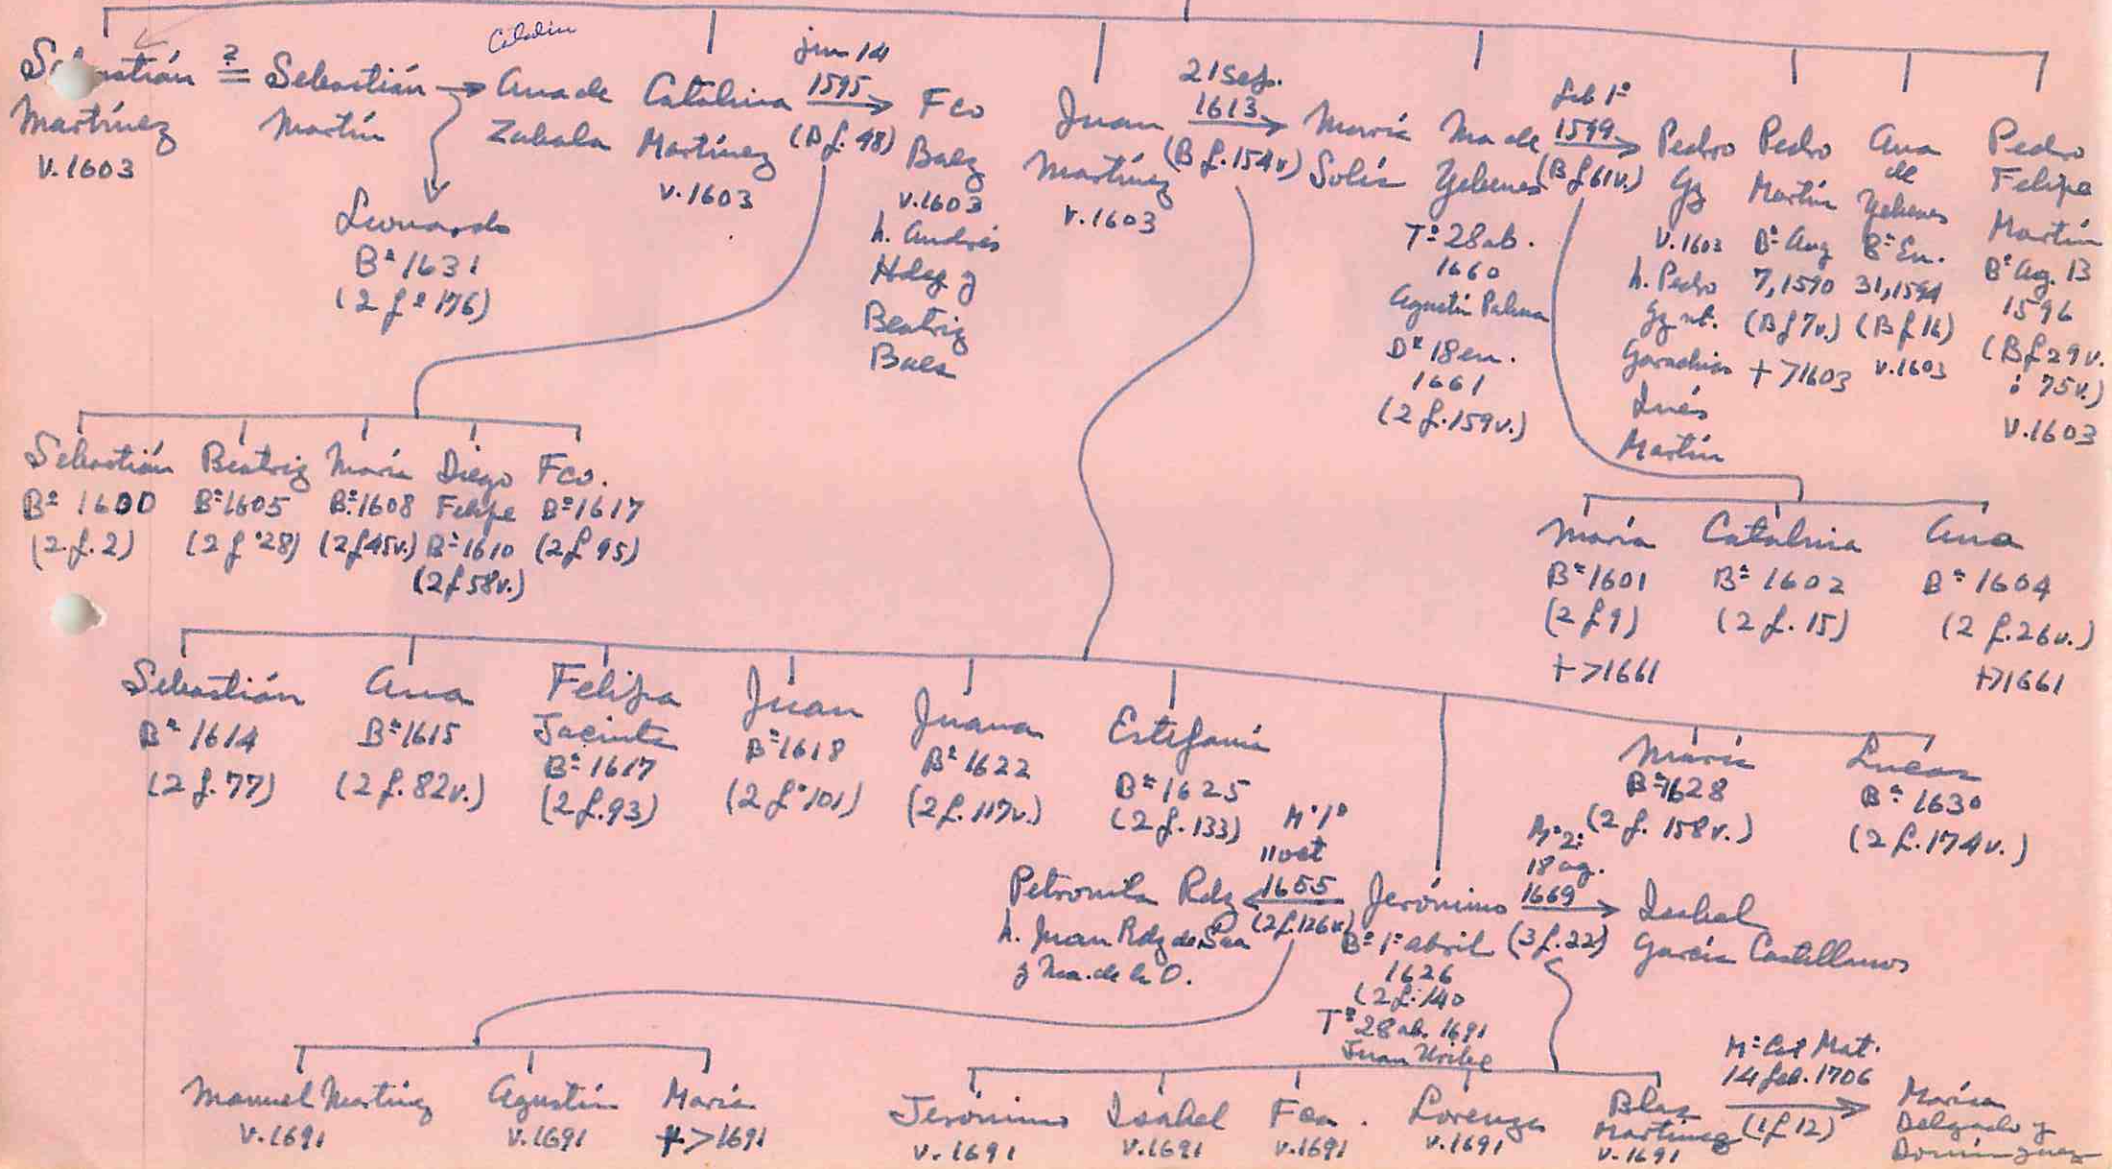 Sebastián
Martínez
v.1603
?
=
Sebastián
Martín
Ana de
Zabala
Leonardo
Bº 1631
(2 fº 176)
Catalina
Martínez
v.1603
jun 14
1595
(B f. 48)
Fco
Baez
v.1603
h. Andrés
Hdez y
Beatriz
Baez
Juan
Martínez
v.1603
21 sep.
1613
(B f. 154v)
María
Solís
Ma de
Yebenes
Tº 28 ab.
1660
Agustín Palma
Dº 18 en.
1661
(2 f. 159v.)
feb 1º
1599
(B f 61v.)
Pedro
Gz
v.1603
h. Pedro
Gz nt.
Inés
Martín
Pedro
Martín
Bº Aug
7, 1590
(B f 7v.)
+ >1603
Ana
de
Yebenes
Bº En.
31, 1594
(B f 16)
v.1603
Pedro
Felipe
Martín
Bº Ag. 13
1596
(B f 29v.
ó 75v.)
v.1603
Sebastián
Bº 1600
(2 f. 2)
Beatriz
Bº 1605
(2 fº 28)
María
Bº 1608
(2 f 45v.)
Diego
Felipe
Bº 1610
(2 f 58v.)
Fco.
Bº 1617
(2 f 95)
María
Bº 1601
(2 f 9)
+ >1661
Catalina
Bº 1602
(2 f. 15)
Ana
Bº 1604
(2 f. 26v.)
+>1661
Sebastián
Bº 1614
(2 f. 77)
Ana
Bº 1615
(2 f. 82v.)
Felipa
Jacinta
Bº 1617
(2 f. 93)
Juan
Bº 1618
(2 fº 101)
Juana
Bº 1622
(2 f. 117v.)
Estefanía
Bº 1625
(2 f. 133)
María
Bº 1628
(2 f. 158v.)
Lucas
Bº 1630
(2 f. 174v.)
Petronila Rdz
h. Juan Rdz de Saa
y Ma. de la O.
Mº 1º
11 oct
1655
(2 f. 126v)
Jerónimo
Bº 1º abril
1626
(2 f. 140
Tº 28 ab. 1691
Juan Uribe
Mº 2º
18 ag.
1669
(3 f. 22)
Isabel
García Castellanos
Manuel Martínez
v.1691
Agustín
v.1691
María
+ >1691
Jerónimo
v.1691
Isabel
v.1691
Fca.
v.1691
Lorenza
v.1691
Blas
Martínez
v.1691
Mº Cat Mat.
14 feb. 1706
(1 f 12)
María
Delgado y
Domínguez